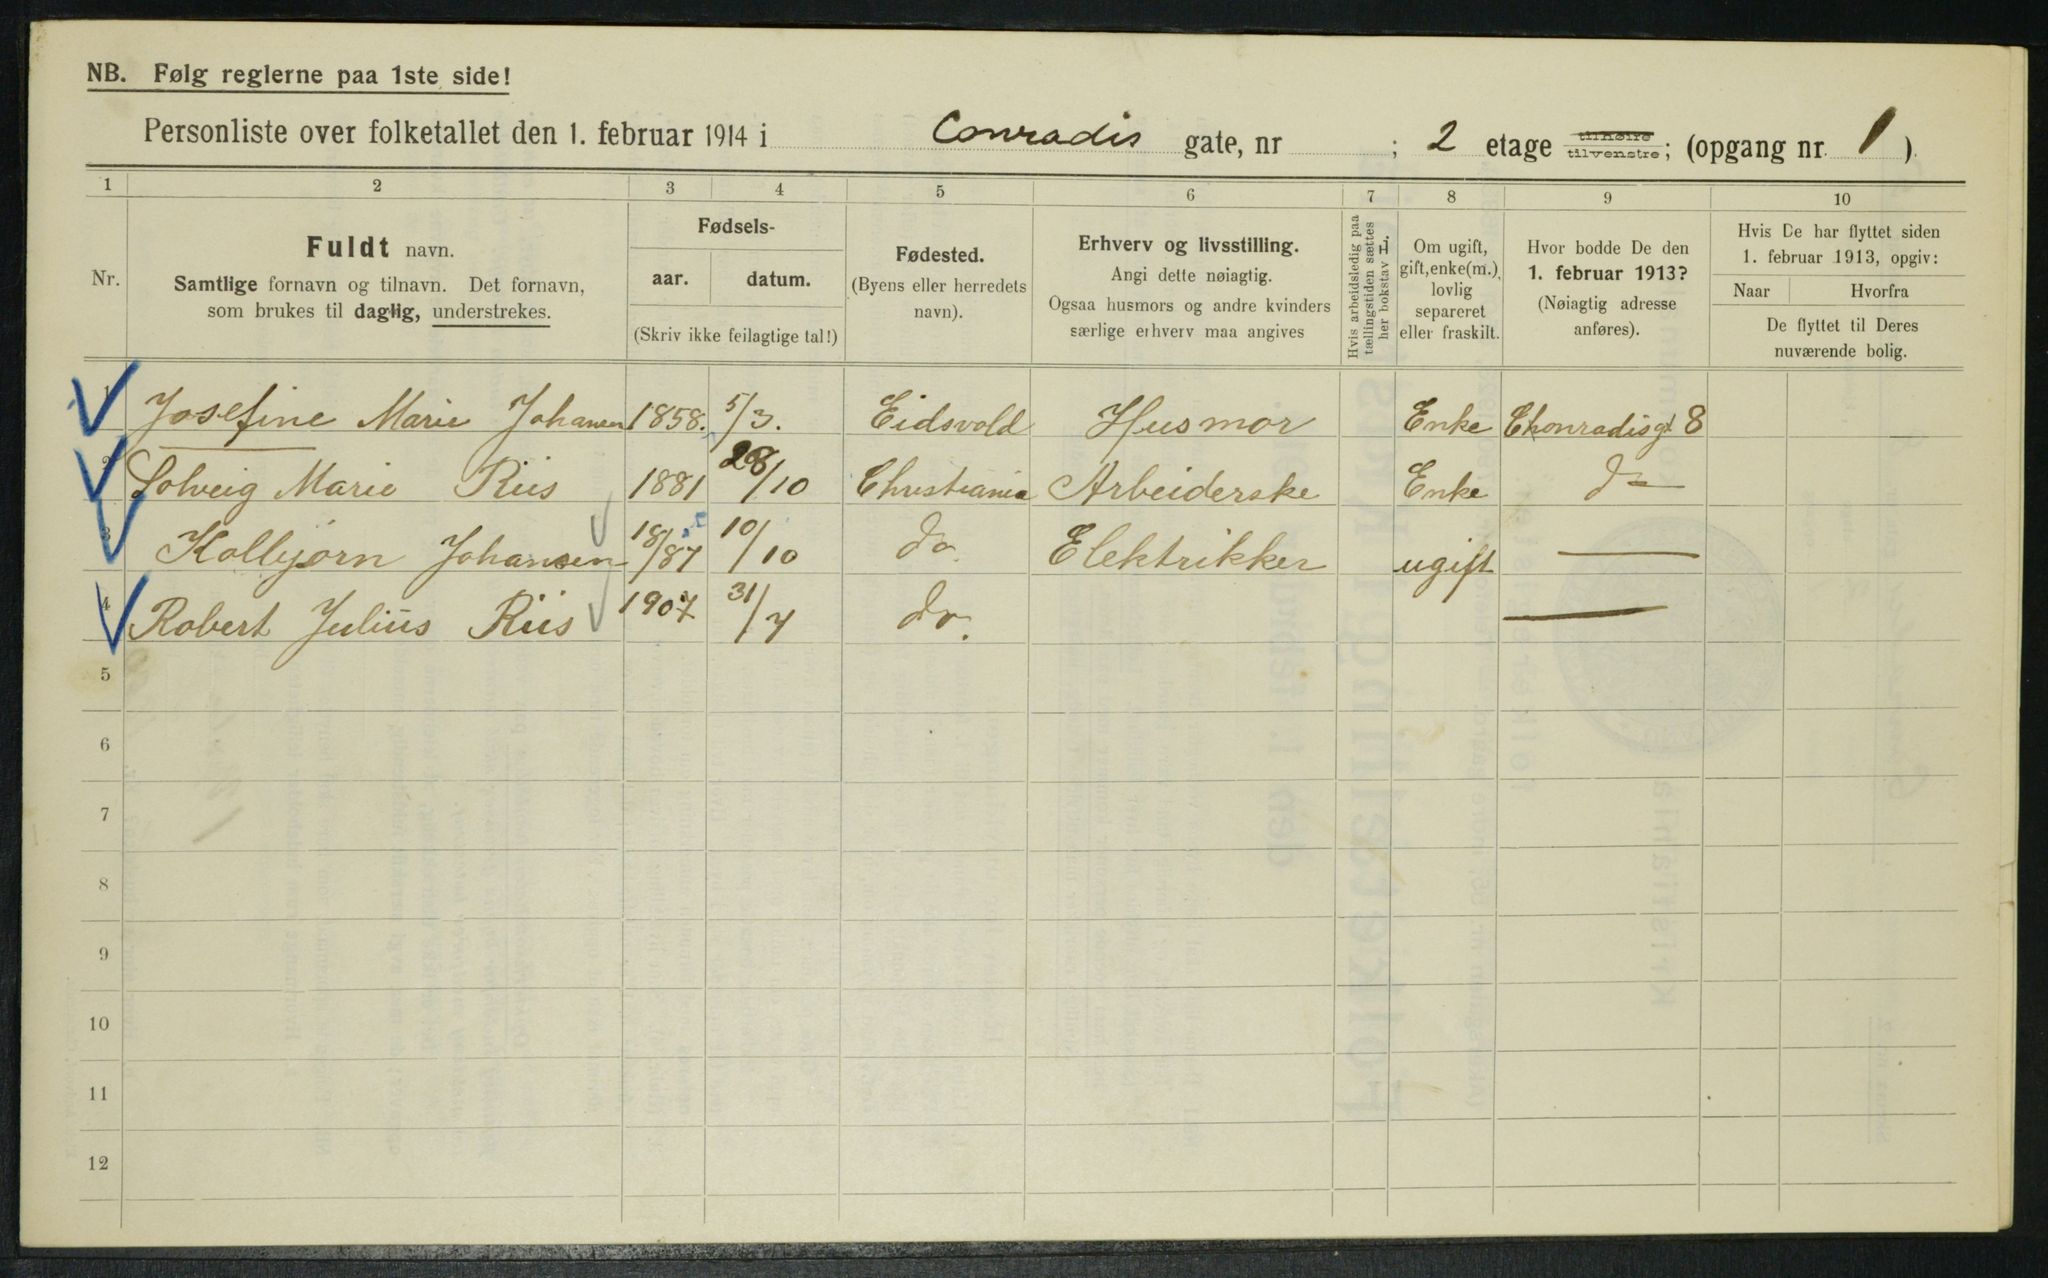 NB. Følg reglerne paa 1ste side!
Personliste over folketallet den 1. februar 1914 i Conradis gate, nr ; 2 etage tilhøire tilvenstre; (opgang nr. 1).
1 2 3 4 5 6 7 8 9 10
Nr.
Fuldt navn.
Samtlige fornavn og tilnavn. Det fornavn,
som brukes til daglig, understrekes.
Fødsels-
aar. datum.
(Skriv ikke feilagtige tal!)
Fødested.
(Byens eller herredets
navn).
Erhverv og livsstilling.
Angi dette nøiagtig.
Ogsaa husmors og andre kvinders
særlige erhverv maa angives
Hvis arbeidsledig paa
tællingstiden sættes
her bokstav L.
Om ugift,
gift, enke(m.),
lovlig
separeret
eller fraskilt.
Hvor bodde De den
1. februar 1913?
(Nøiagtig adresse
anføres).
Hvis De har flyttet siden
1. februar 1913, opgiv:
Naar Hvorfra
De flyttet til Deres
nuværende bolig.
1 Josefine Marie Johansen 1858. 5/3. Eidsvold Husmor Enke Chonradisgt 8
2 Solveig Marie Riis 1881 28/10 Christiania Arbeiderske Enke do
3 Kolbjørn Johansen 18/87 10/10 do Elektrikker ugift —
4 Robert Julius Riis 1907 31/7 do. —
5
6
7
8
9
10
11
12